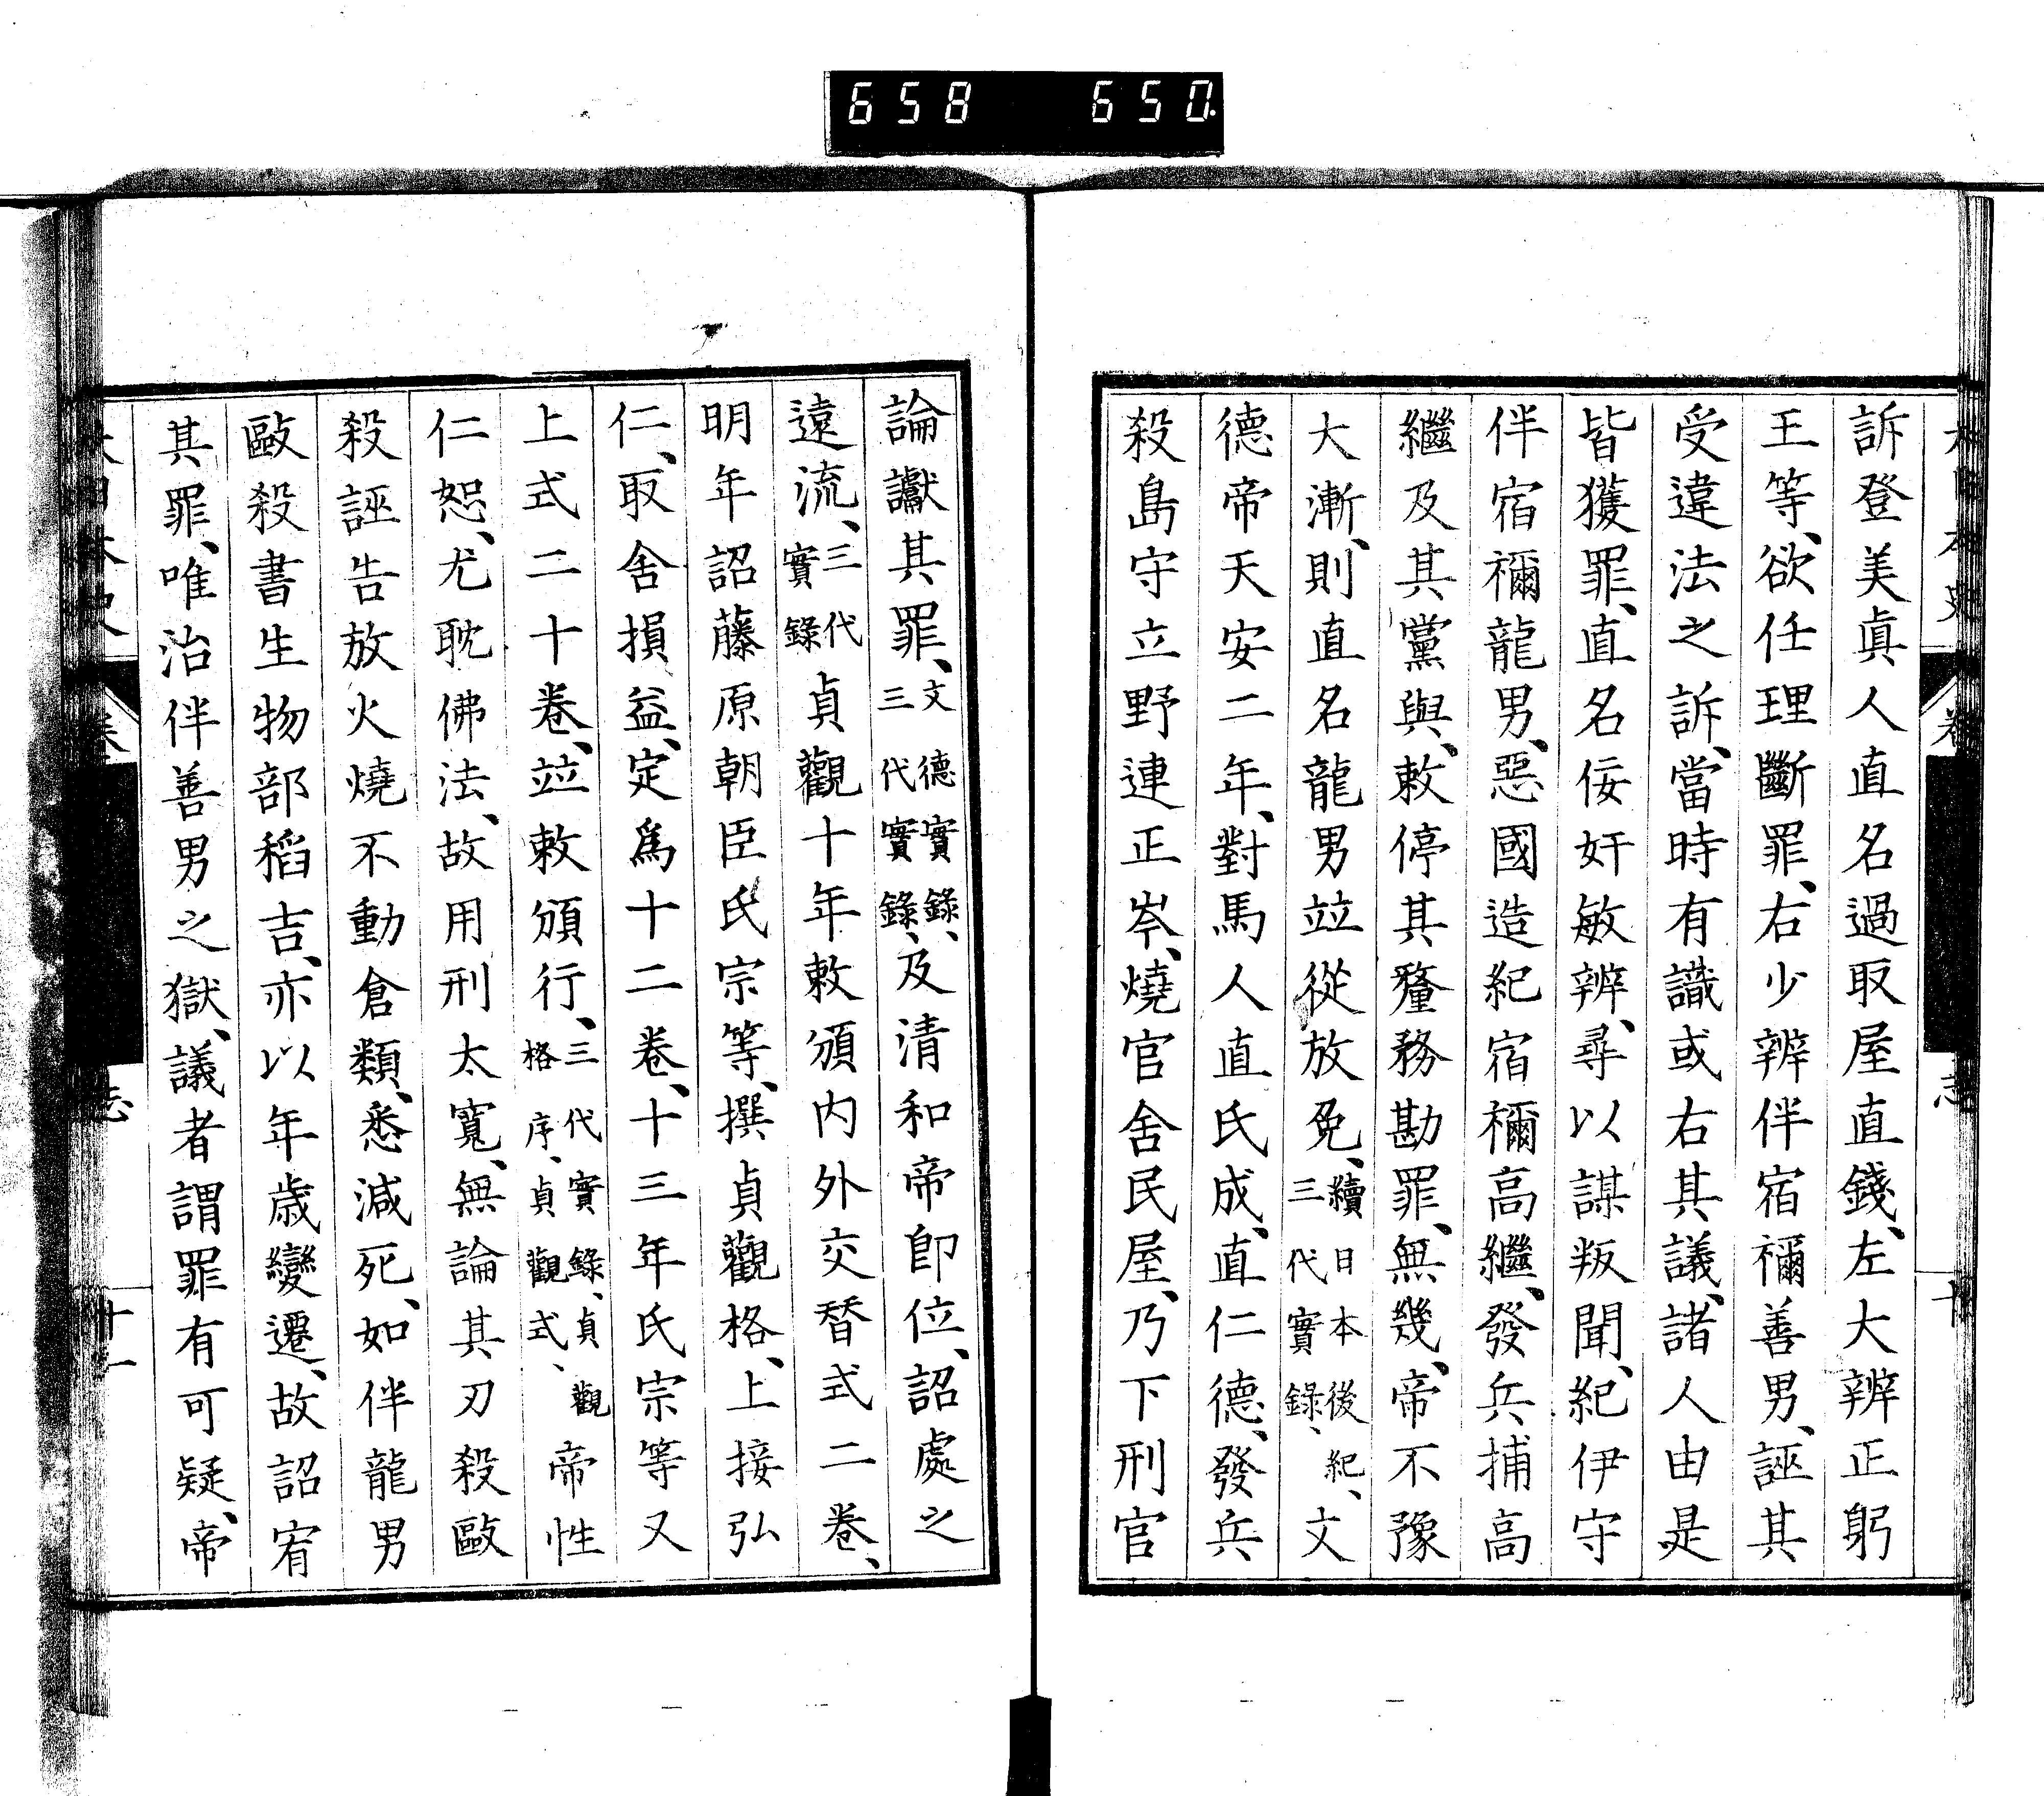 658 650
訴登美眞人直名過取屋直錢、左大辨正躬
王等、欲任理斷罪、右少辨伴宿禰善男、誣其
受違法之訴、當時有識或右其議、諸人由是
皆獲罪、直名佞奸敏辨、尋以謀叛聞、紀伊守
伴宿禰龍男、惡國造紀宿禰高繼、發兵捕高
繼及其黨與、敕停其釐務勘罪、無幾、帝不豫
大漸、則直名龍男竝從放免、續日本後紀、三代實錄、文
德帝天安二年、對馬人直氏成、直仁德、發兵
殺島守立野連正岑、燒官舍民屋、乃下刑官
論讞其罪、文德實錄、三代實錄、及清和帝卽位、詔處之
遠流、三代實錄貞觀十年敕頒內外交替式二卷、
明年詔藤原朝臣氏宗等、撰貞觀格、上接弘
仁、取舍損益、定爲十二卷、十三年氏宗等又
上式二十卷、竝敕頒行、三代實錄、貞觀格序、貞觀式、帝性
仁恕、尤耽佛法、故用刑太寬、無論其刃殺毆
殺誣告放火燒不動倉類、悉減死、如伴龍男
毆殺書生物部稻吉、亦以年歲變遷、故詔宥
其罪、唯治伴善男之獄、議者謂罪有可疑、帝
志
十一